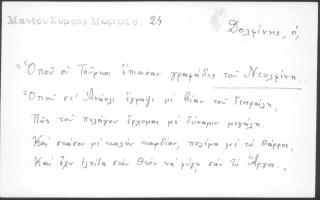 Μάνθου Συμφορ Μωρέως σ. 24
Δολφίνης, ὁ,
"Ὁποῦ οἱ Τοῦρκοι ἔπιασαν γραφάδες τοῦ Ντολφίνη.
Ὁποῦ στ' Ἀνάπλι ἔγραψε μὲ βίαν τοῦ Γενεράλη,
Πῶς τοῦ πελάγου ἔρχομαι μὲ δύναμιν μεγάλη
Καὶ στάσου μὲ καλὴν καρδίαν, πολέμα μὲ τὸ θάρρος,
Καὶ ἔχω ἐλπίδα στὸν Θεὸν νὰ φύγῃ σὰν τὸ Ἄργος..